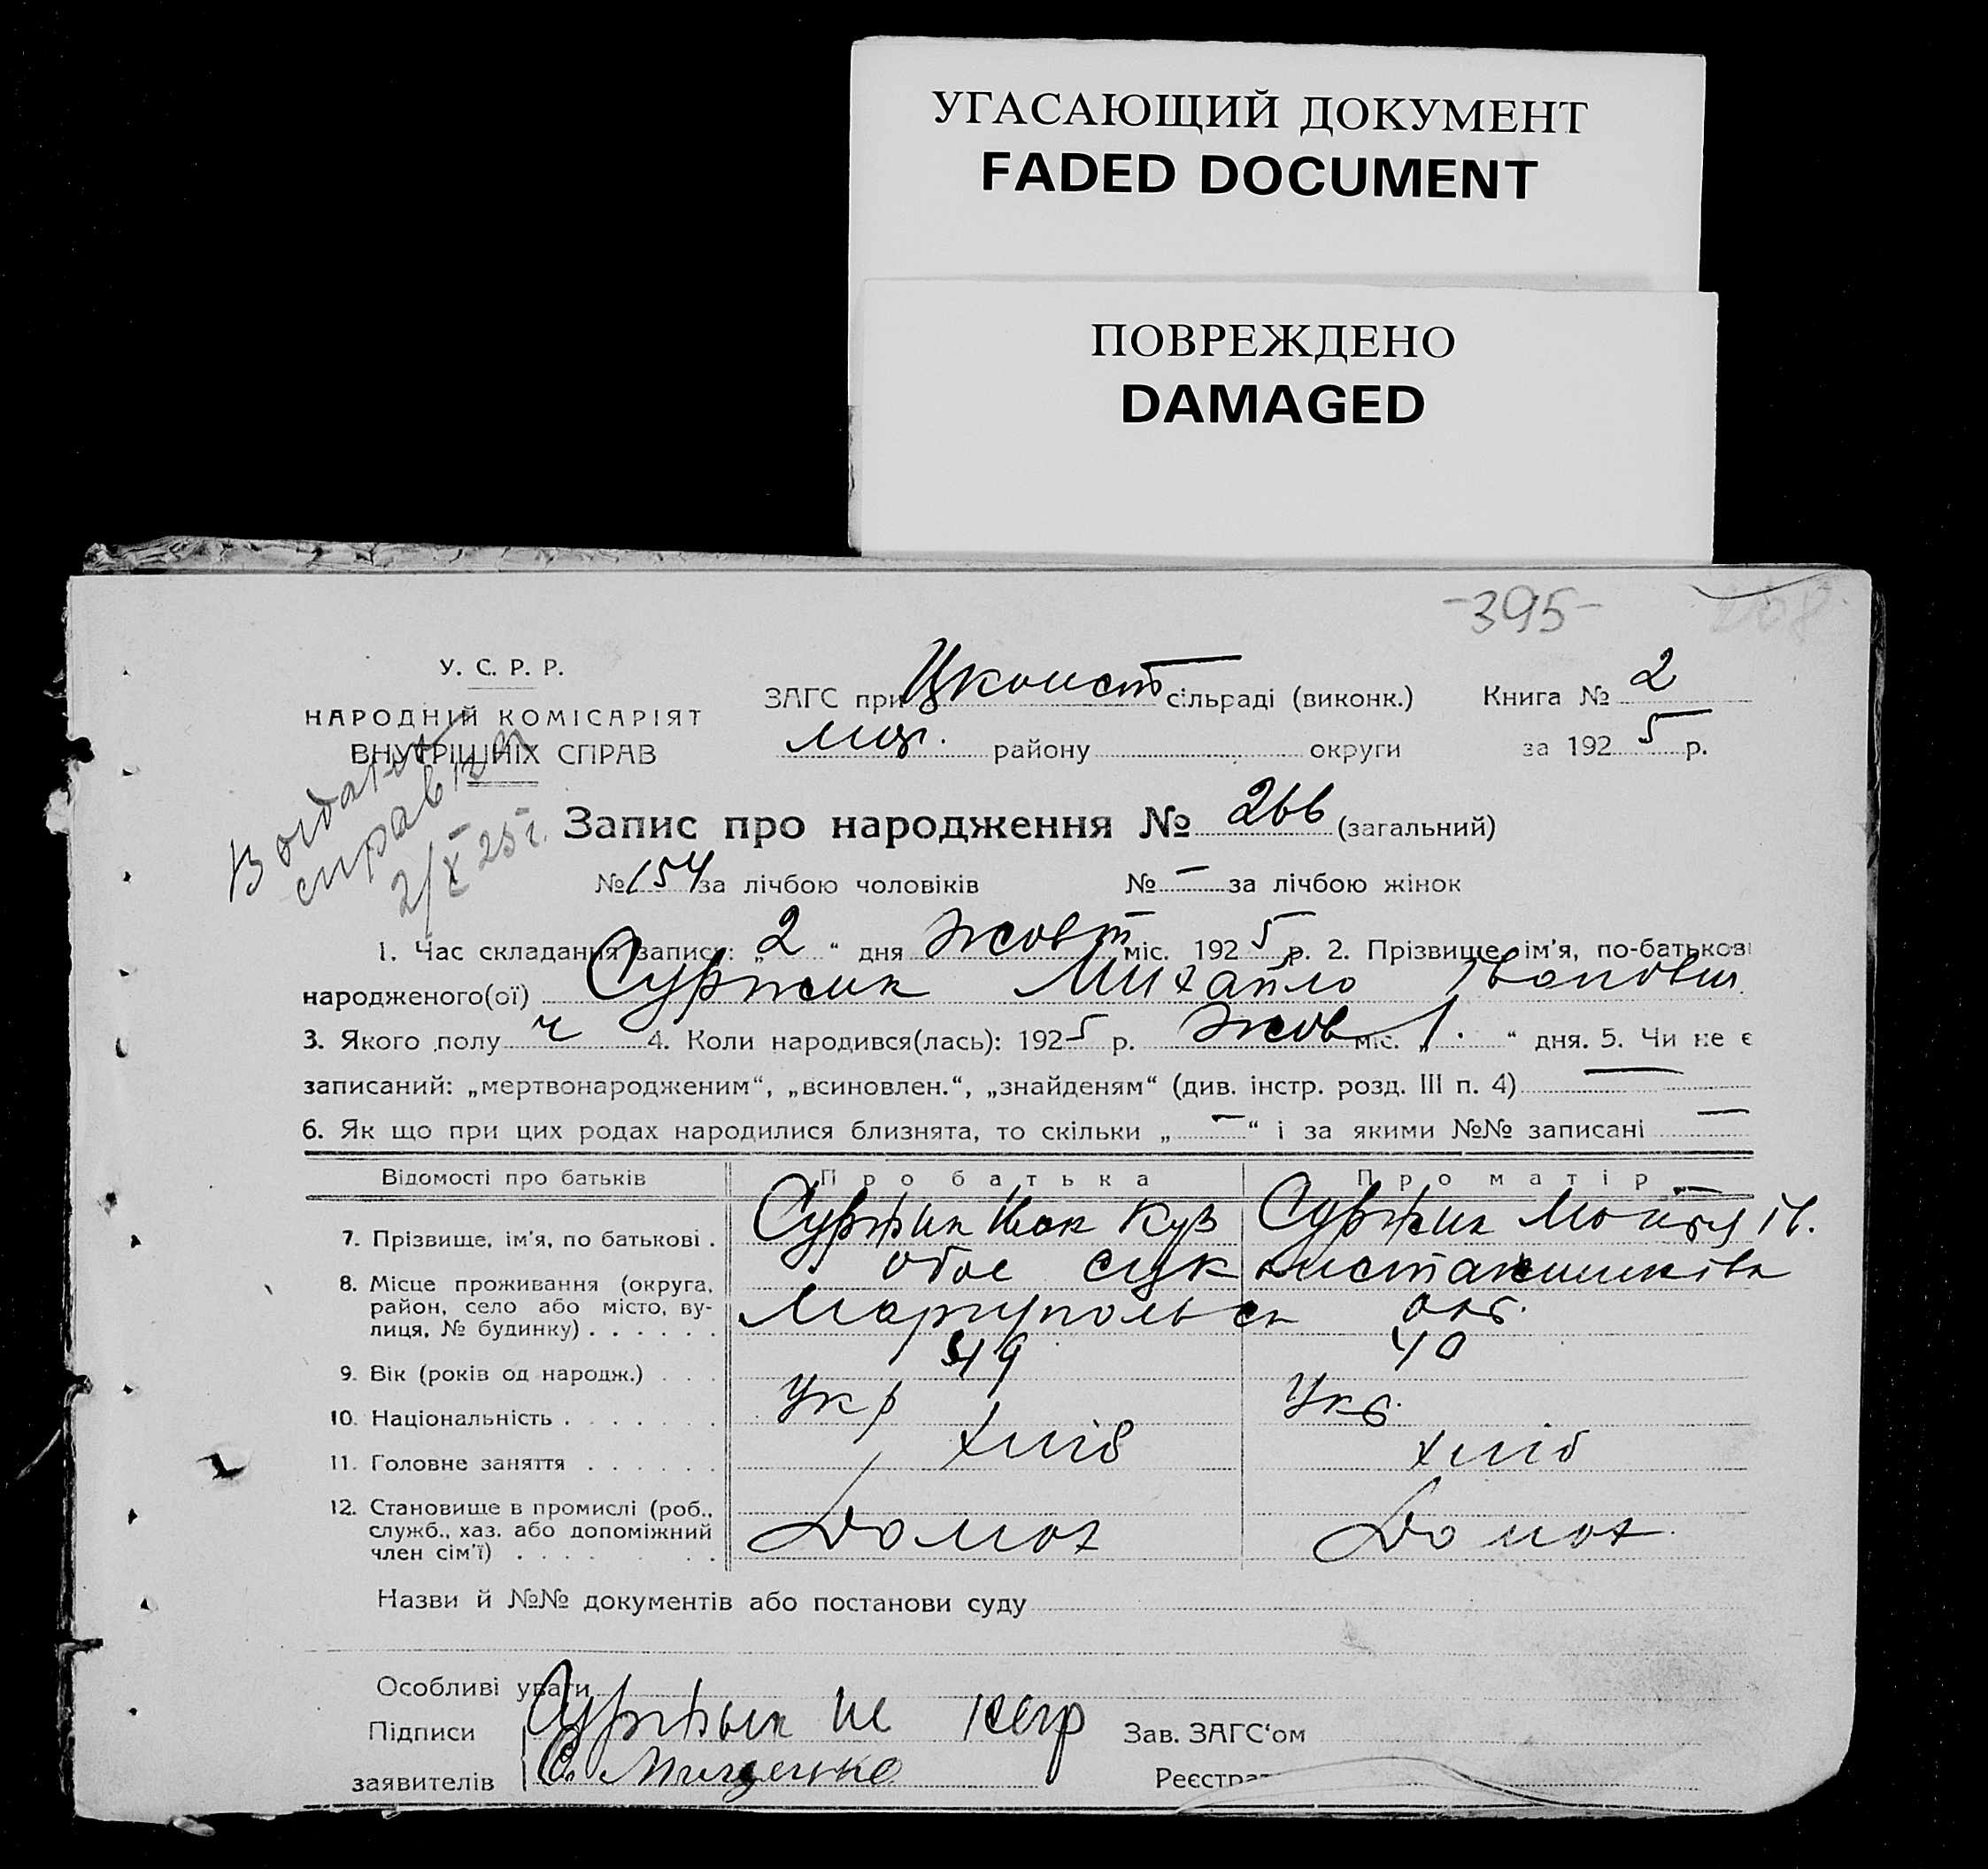 УГАСАЮЩИЙ ДОКУМЕНТ
FADED DOCUMENT
ПОВРЕЖДЕНО
DAMAGED
-395-
У. С. Р. Р.
НАРОДНІЙ КОМІСАРІЯТ
ВНУТРІШНІХ СПРАВ
ЗАГС при сільраді (виконк.) Книга № 2
району округи за 1925 р.
справка
2/X 25 г.
Запис про народження № 266 (загальний)
№ 154 за лічбою чоловіків № — за лічбою жінок
1. Час складання запису: „2“ дня жовт міс. 1925 р. 2. Прізвище, ім'я, по-батькові
народженого(ої) Суржик Михайло Іванович
3. Якого полу ч 4. Коли народився(лась): 1925 р. жов міс. „1.“ дня. 5. Чи не є
записаний: „мертвонародженим“, „всиновлен.“, „знайденям“ (див. інстр. розд. III п. 4) —
6. Як що при цих родах народилися близнята, то скільки „—“ і за якими №№ записані —
Відомості про батьків Про батька Про матір
7. Прізвище, ім'я, по батькові . Суржик Іван Куз Суржик Ів.
8. Місце проживання (округа, район, село або місто, вулиця, № будинку) . . . . . . обоє
Маріупольск окр.
9. Вік (років од народж.) . . . 49 40
10. Національність . . . . . . Укр Укр.
11. Головне заняття . . . . . . хліб хліб
12. Становище в промислі (роб., служб., хаз. або допоміжний член сім'ї) . . . . . . Домох Домох
Назви й №№ документів або постанови суду
Особливі уваги
Підписи Суржик Зав. ЗАГС'ом
заявителів С. Мищенко Реєстра